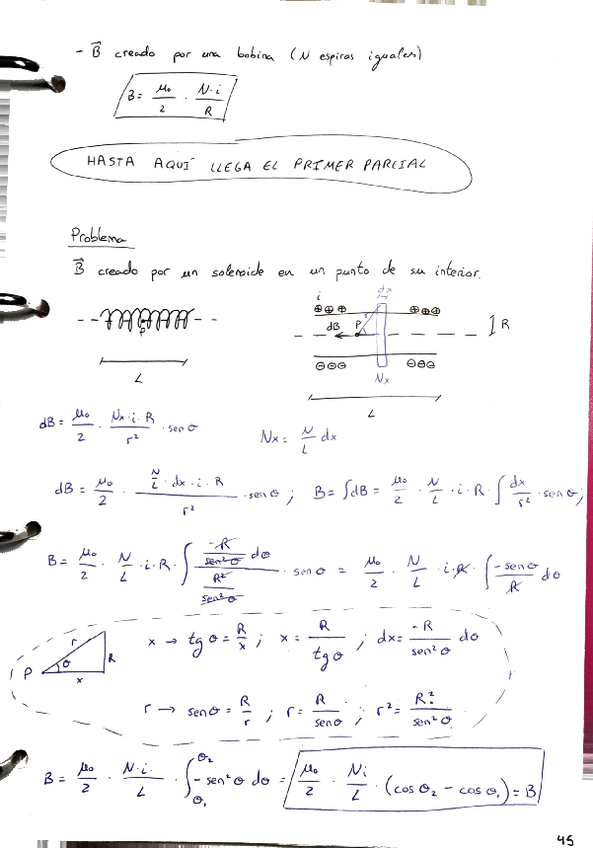 - B⃗ creado por una bobina (N espiras iguales)
B = μ₀/2 · N·i/R
HASTA AQUÍ LLEGA EL PRIMER PARCIAL
Problema
B⃗ creado por un solenoide en un punto de su interior.
P
L
i dx
⊕⊕⊕ ⊕⊕⊕
dB P r R
⊖⊖⊖ ⊖⊖⊖
Nx
L
dB = μ₀/2 · Nx·i·R/r² · sen θ Nx = N/L dx
dB = μ₀/2 · (N/L · dx · i · R)/r² · sen θ ; B = ∫dB = μ₀/2 · N/L · i · R · ∫ dx/r² · sen θ ;
B = μ₀/2 · N/L · i · R · ∫ (-R/sen² θ dθ)/(R²/sen² θ) · sen θ = μ₀/2 · N/L · i · R · ∫ -sen θ/R dθ
P r θ R x
x → tg θ = R/x ; x = R/tg θ ; dx = -R/sen² θ dθ
r → sen θ = R/r ; r = R/sen θ ; r² = R²/sen² θ
B = μ₀/2 · N·i·/L · ∫_θ₁^θ₂ -sen² θ dθ = μ₀/2 · Ni/L · (cos θ₂ - cos θ₁) = B
45